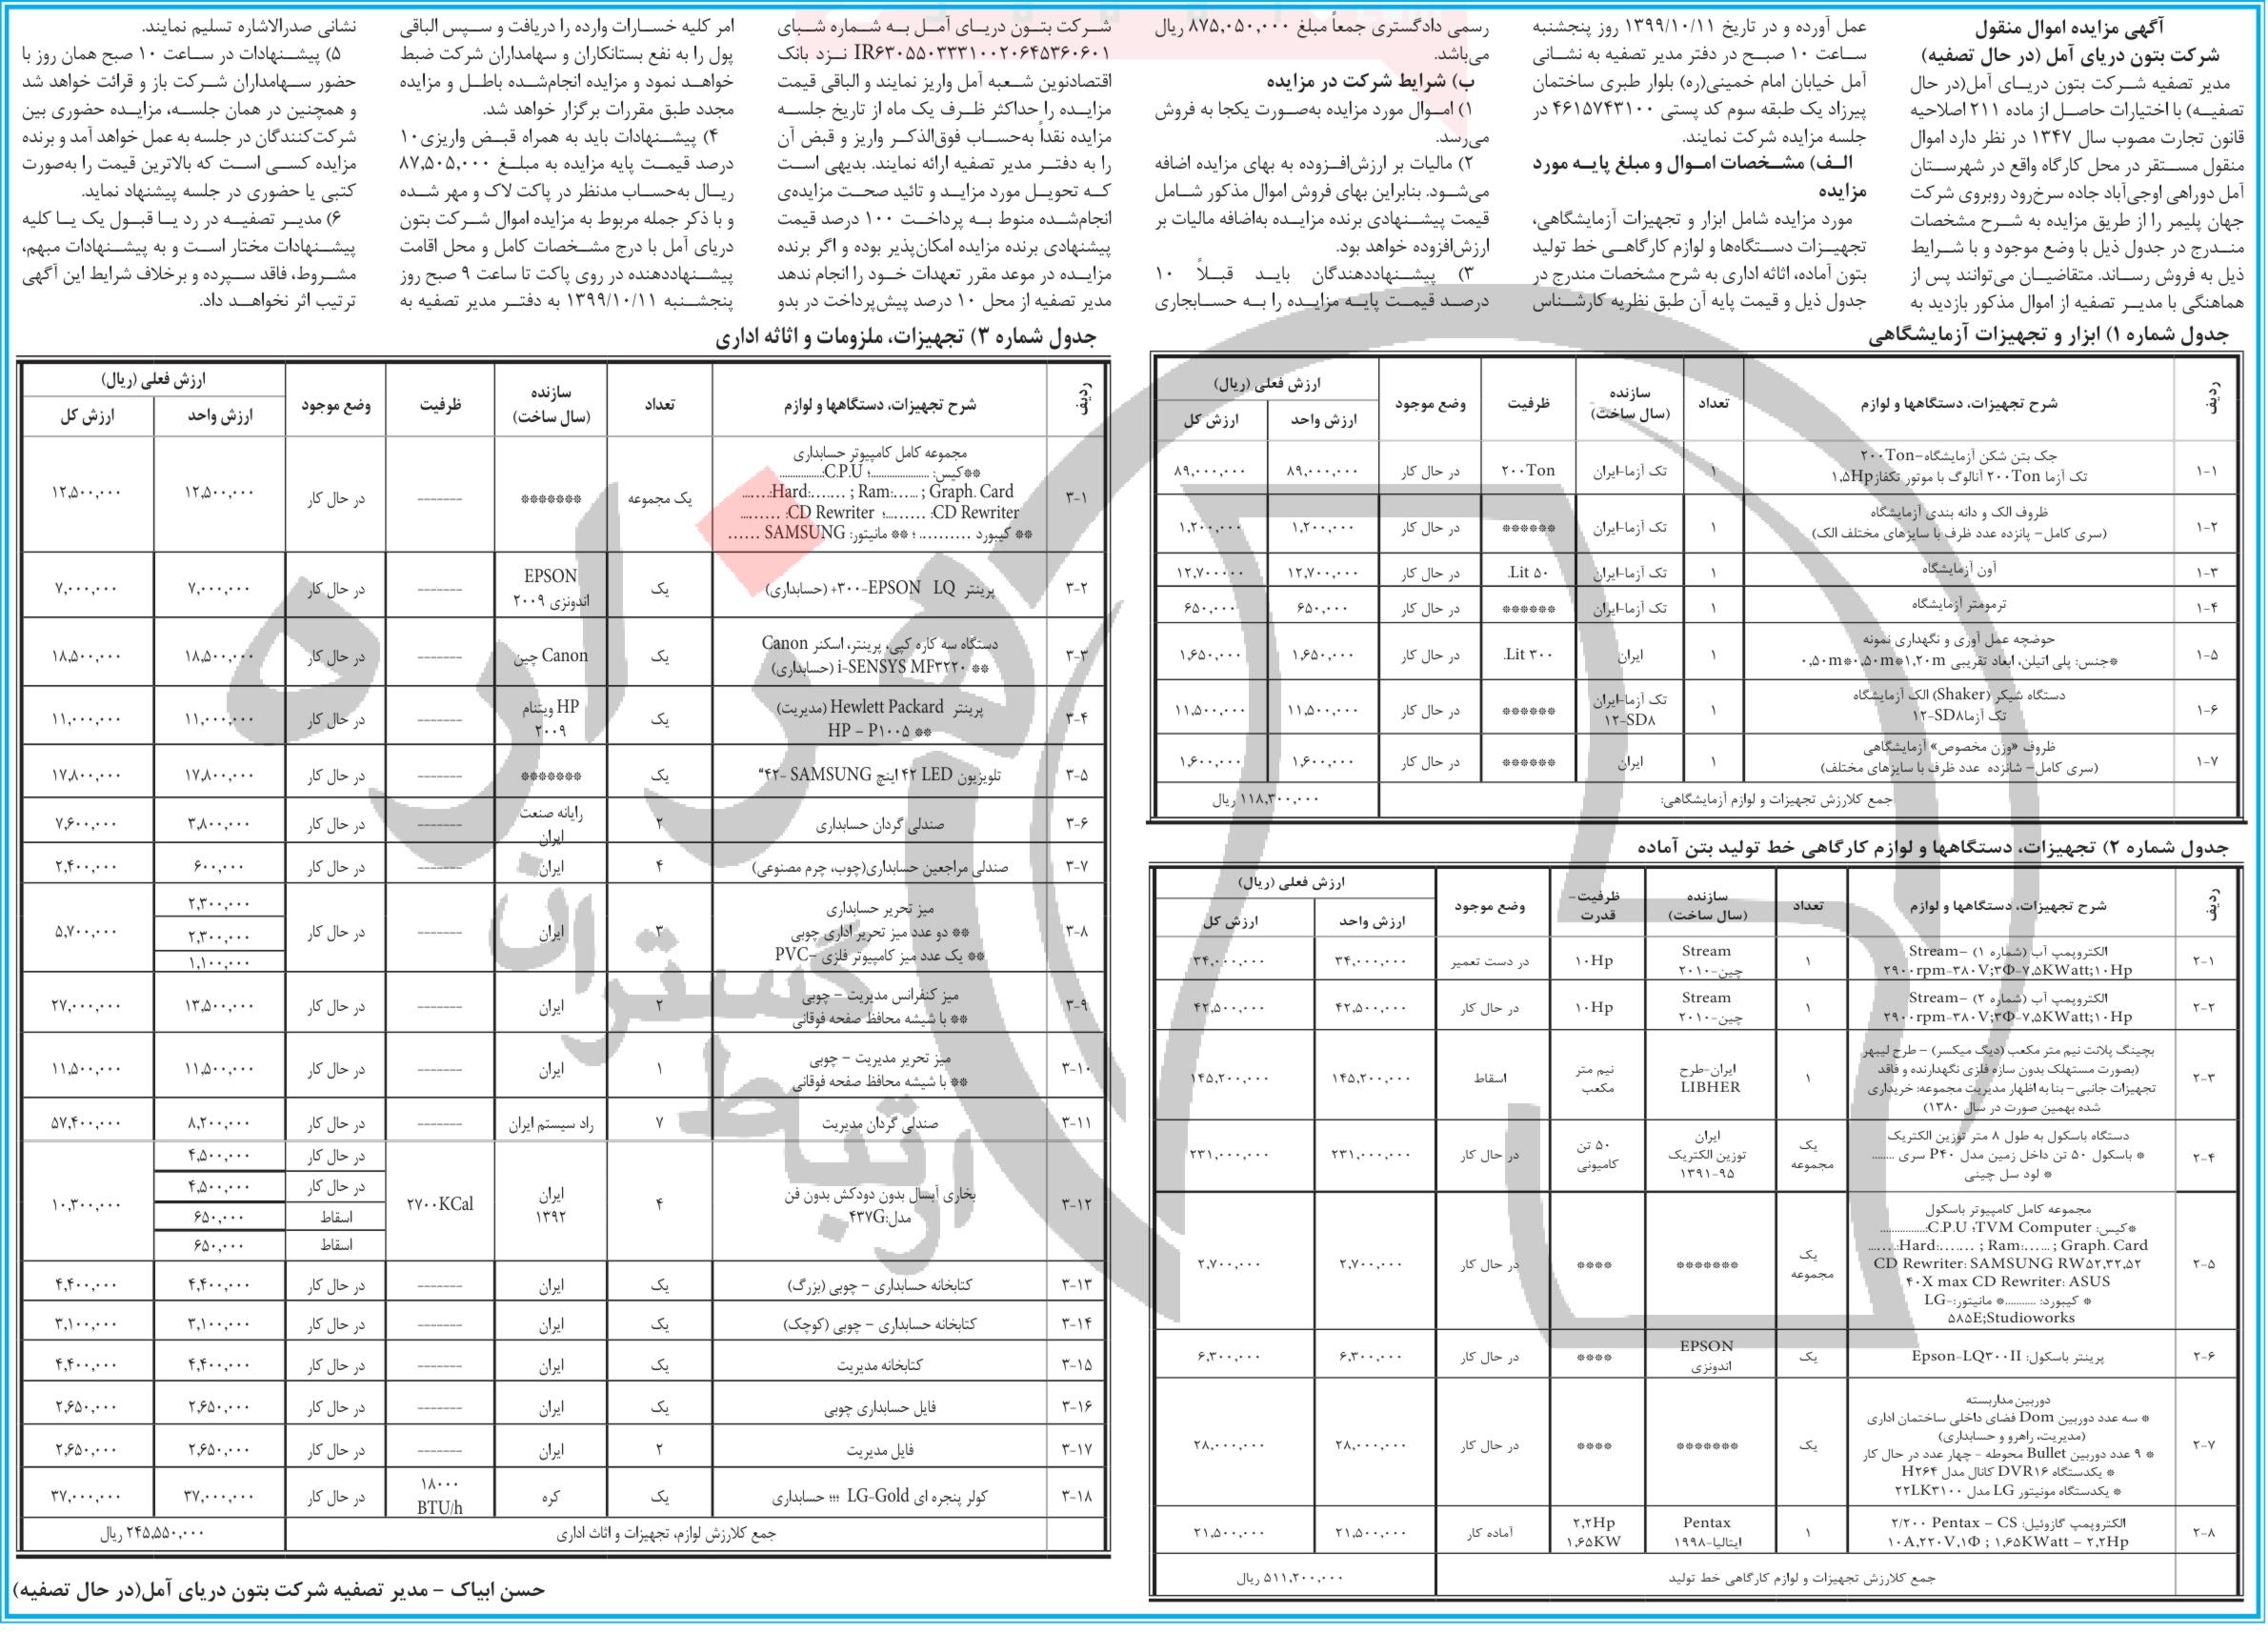 آگهی مزایده اموال منقول
شرکت بتون دریای آمل (در حال تصفیه)
مدیر تصفیه شرکت بتون دریای آمل(در حال
تصفیه) با اختیارات حاصل از ماده ۲۱۱ اصلاحیه
قانون تجارت مصوب سال ۱۳۴۷ در نظر دارد اموال
منقول مستقر در محل کارگاه واقع در شهرستان
آمل دوراهی اوجی‌آباد جاده سرخ‌رود روبروی شرکت
جهان پلیمر را از طریق مزایده به شرح مشخصات
مندرج در جدول ذیل با وضع موجود و با شرایط
ذیل به فروش رساند. متقاضیان می‌توانند پس از
هماهنگی با مدیر تصفیه از اموال مذکور بازدید به
عمل آورده و در تاریخ ۱۳۹۹/۱۰/۱۱ روز پنجشنبه
ساعت ۱۰ صبح در دفتر مدیر تصفیه به نشانی
آمل خیابان امام خمینی(ره) بلوار طبری ساختمان
پیرزاد یک طبقه سوم کد پستی ۴۶۱۵۷۴۳۱۰۰ در
جلسه مزایده شرکت نمایند.
الف) مشخصات اموال و مبلغ پایه مورد
مزایده
مورد مزایده شامل ابزار و تجهیزات آزمایشگاهی،
تجهیزات دستگاه‌ها و لوازم کارگاهی خط تولید
بتون آماده، اثاثه اداری به شرح مشخصات مندرج در
جدول ذیل و قیمت پایه آن طبق نظریه کارشناس
رسمی دادگستری جمعاً مبلغ ۸۷۵,۰۵۰,۰۰۰ ریال
می‌باشد.
ب) شرایط شرکت در مزایده
۱) اموال مورد مزایده به‌صورت یکجا به فروش
می‌رسد.
۲) مالیات بر ارزش‌افزوده به بهای مزایده اضافه
می‌شود. بنابراین بهای فروش اموال مذکور شامل
قیمت پیشنهادی برنده مزایده به‌اضافه مالیات بر
ارزش‌افزوده خواهد بود.
۳) پیشنهاددهندگان باید قبلاً ۱۰
درصد قیمت پایه مزایده را به حسابجاری
شرکت بتون دریای آمل به شماره شبای
IR۶۳۰۵۵۰۳۳۳۱۰۰۲۰۶۴۵۳۶۰۶۰۱ نزد بانک
اقتصادنوین شعبه آمل واریز نمایند و الباقی قیمت
مزایده را حداکثر ظرف یک ماه از تاریخ جلسه
مزایده نقداً به‌حساب فوق‌الذکر واریز و قبض آن
را به دفتر مدیر تصفیه ارائه نمایند. بدیهی است
که تحویل مورد مزاید و تائید صحت مزایده‌ی
انجام‌شده منوط به پرداخت ۱۰۰ درصد قیمت
پیشنهادی برنده مزایده امکان‌پذیر بوده و اگر برنده
مزایده در موعد مقرر تعهدات خود را انجام ندهد
مدیر تصفیه از محل ۱۰ درصد پیش‌پرداخت در بدو
امر کلیه خسارات وارده را دریافت و سپس الباقی
پول را به نفع بستانکاران و سهامداران شرکت ضبط
خواهد نمود و مزایده انجام‌شده باطل و مزایده
مجدد طبق مقررات برگزار خواهد شد.
۴) پیشنهادات باید به همراه قبض واریزی۱۰
درصد قیمت پایه مزایده به مبلغ ۸۷,۵۰۵,۰۰۰
ریال به‌حساب مدنظر در پاکت لاک و مهر شده
و با ذکر جمله مربوط به مزایده اموال شرکت بتون
دریای آمل با درج مشخصات کامل و محل اقامت
پیشنهاددهنده در روی پاکت تا ساعت ۹ صبح روز
پنجشنبه ۱۳۹۹/۱۰/۱۱ به دفتر مدیر تصفیه به
نشانی صدرالاشاره تسلیم نمایند.
۵) پیشنهادات در ساعت ۱۰ صبح همان روز با
حضور سهامداران شرکت باز و قرائت خواهد شد
و همچنین در همان جلسه، مزایده حضوری بین
شرکت‌کنندگان در جلسه به عمل خواهد آمد و برنده
مزایده کسی است که بالاترین قیمت را به‌صورت
کتبی یا حضوری در جلسه پیشنهاد نماید.
۶) مدیر تصفیه در رد یا قبول یک یا کلیه
پیشنهادات مختار است و به پیشنهادات مبهم،
مشروط، فاقد سپرده و برخلاف شرایط این آگهی
ترتیب اثر نخواهد داد.
جدول شماره ۱) ابزار و تجهیزات آزمایشگاهی
ردیف شرح تجهیزات، دستگاهها و لوازم تعداد سازنده (سال ساخت) ظرفیت وضع موجود ارزش فعلی (ریال) ارزش واحد ارزش کل
۱-۱ جک بتن شکن آزمایشگاه-۲۰۰Ton تک آزما ۲۰۰Ton آنالوگ با موتور تکفاز۱,۵Hp ۱ تک آزما-ایران ۲۰۰Ton در حال کار ۸۹,۰۰۰,۰۰۰ ۸۹,۰۰۰,۰۰۰
۱-۲ ظروف الک و دانه بندی آزمایشگاه (سری کامل- پانزده عدد ظرف با سایزهای مختلف الک) ۱ تک آزما-ایران ****** در حال کار ۱,۲۰۰,۰۰۰ ۱,۲۰۰,۰۰۰
۱-۳ آون آزمایشگاه ۱ تک آزما-ایران ۵۰ Lit. در حال کار ۱۲,۷۰۰,۰۰۰ ۱۲,۷۰۰۰۰۰
۱-۴ ترمومتر آزمایشگاه ۱ تک آزما-ایران ****** در حال کار ۶۵۰,۰۰۰ ۶۵۰,۰۰۰
۱-۵ حوضچه عمل آوری و نگهداری نمونه *جنس: پلی اتیلن، ابعاد تقریبی ۰,۵۰m*۰,۵۰m*۱,۲۰m ۱ ایران ۳۰۰ Lit. در حال کار ۱,۶۵۰,۰۰۰ ۱,۶۵۰,۰۰۰
۱-۶ دستگاه شیکر (Shaker) الک آزمایشگاه تک آزما۱۲-SD۸ ۱ تک آزما-ایران ۱۲-SD۸ ****** در حال کار ۱۱,۵۰۰,۰۰۰ ۱۱,۵۰۰,۰۰۰
۱-۷ ظروف «وزن مخصوص» آزمایشگاهی (سری کامل- شانزده عدد ظرف با سایزهای مختلف) ۱ ایران ****** در حال کار ۱,۶۰۰,۰۰۰ ۱,۶۰۰,۰۰۰
جمع کلارزش تجهیزات و لوازم آزمایشگاهی: ۱۱۸,۳۰۰,۰۰۰ ریال
جدول شماره ۲) تجهیزات، دستگاهها و لوازم کارگاهی خط تولید بتن آماده
ردیف شرح تجهیزات، دستگاهها و لوازم تعداد سازنده (سال ساخت) ظرفیت- قدرت وضع موجود ارزش فعلی (ریال) ارزش واحد ارزش کل
۲-۱ الکتروپمپ آب (شماره ۱) -Stream ۲۹۰۰rpm-۳۸۰V;۳Φ-۷,۵KWatt;۱۰Hp ۱ Stream چین-۲۰۱۰ ۱۰Hp در دست تعمیر ۳۴,۰۰۰,۰۰۰ ۳۴,۰۰۰,۰۰۰
۲-۲ الکتروپمپ آب (شماره ۲) -Stream ۲۹۰۰rpm-۳۸۰V;۳Φ-۷,۵KWatt;۱۰Hp ۱ Stream چین-۲۰۱۰ ۱۰Hp در حال کار ۴۲,۵۰۰,۰۰۰ ۴۲,۵۰۰,۰۰۰
۲-۳ بچینگ پلانت نیم متر مکعب (دیگ میکسر) - طرح لیبهر (بصورت مستهلک بدون سازه فلزی نگهدارنده و فاقد تجهیزات جانبی- بنا به اظهار مدیریت مجموعه: خریداری شده بهمین صورت در سال ۱۳۸۰) ۱ ایران-طرح LIBHER نیم متر مکعب اسقاط ۱۴۵,۲۰۰,۰۰۰ ۱۴۵,۲۰۰,۰۰۰
۲-۴ دستگاه باسکول به طول ۸ متر توزین الکتریک * باسکول ۵۰ تن داخل زمین مدل P۴۰ سری ........ * لود سل چینی یک مجموعه ایران توزین الکتریک ۱۳۹۱-۹۵ ۵۰ تن کامیونی در حال کار ۲۳۱,۰۰۰,۰۰۰ ۲۳۱,۰۰۰,۰۰۰
۲-۵ مجموعه کامل کامپیوتر باسکول *کیس: TVM Computer؛ C.P.U:................ Hard:....... ; Ram:...... ; Graph. Card:....... CD Rewriter: SAMSUNG RW۵۲,۳۲,۵۲ ۴۰X max CD Rewriter: ASUS * کیبورد: ...........* مانیتور:-LG ۵۸۵E;Studioworks یک مجموعه ******* **** در حال کار ۲,۷۰۰,۰۰۰ ۲,۷۰۰,۰۰۰
۲-۶ پرینتر باسکول: Epson-LQ۳۰۰II یک EPSON اندونزی **** در حال کار ۶,۳۰۰,۰۰۰ ۶,۳۰۰,۰۰۰
۲-۷ دوربین مداربسته * سه عدد دوربین Dom فضای داخلی ساختمان اداری (مدیریت، راهرو و حسابداری) * ۹ عدد دوربین Bullet محوطه - چهار عدد در حال کار * یکدستگاه DVR۱۶ کانال مدل H۲۶۴ * یکدستگاه مونیتور LG مدل ۲۲LK۳۱۰۰ یک ******* **** در حال کار ۲۸,۰۰۰,۰۰۰ ۲۸,۰۰۰,۰۰۰
۲-۸ الکتروپمپ گازوئیل: ۲/۲۰۰ Pentax - CS ۱۰A,۲۲۰V,۱Φ ; ۱,۶۵KWatt - ۲,۲Hp ۱ Pentax ایتالیا-۱۹۹۸ ۲,۲Hp ۱,۶۵KW آماده کار ۲۱,۵۰۰,۰۰۰ ۲۱,۵۰۰,۰۰۰
جمع کلارزش تجهیزات و لوازم کارگاهی خط تولید ۵۱۱,۲۰۰,۰۰۰ ریال
جدول شماره ۳) تجهیزات، ملزومات و اثاثه اداری
ردیف شرح تجهیزات، دستگاهها و لوازم تعداد سازنده (سال ساخت) ظرفیت وضع موجود ارزش فعلی (ریال) ارزش واحد ارزش کل
۳-۱ مجموعه کامل کامپیوتر حسابداری **کیس: ....................؛ C.P.U:............... Hard:....... ; Ram:...... ; Graph. Card:....... CD Rewriter: .......؛ CD Rewriter: ....... ** کیبورد ..........؛ ** مانیتور: SAMSUNG ...... یک مجموعه ******* ------- در حال کار ۱۲,۵۰۰,۰۰۰ ۱۲,۵۰۰,۰۰۰
۳-۲ پرینتر EPSON LQ-۳۰۰+ (حسابداری) یک EPSON اندونزی ۲۰۰۹ ------- در حال کار ۷,۰۰۰,۰۰۰ ۷,۰۰۰,۰۰۰
۳-۳ دستگاه سه کاره کپی، پرینتر، اسکنر Canon ** i-SENSYS MF۳۲۲۰ (حسابداری) یک Canon چین ------- در حال کار ۱۸,۵۰۰,۰۰۰ ۱۸,۵۰۰,۰۰۰
۳-۴ پرینتر Hewlett Packard (مدیریت) ** HP - P۱۰۰۵ یک HP ویتنام ۲۰۰۹ ------- در حال کار ۱۱,۰۰۰,۰۰۰ ۱۱,۰۰۰,۰۰۰
۳-۵ تلویزیون ۴۲ LED اینچ SAMSUNG -۴۲“ یک ******* ------- در حال کار ۱۷,۸۰۰,۰۰۰ ۱۷,۸۰۰,۰۰۰
۳-۶ صندلی گردان حسابداری ۲ رایانه صنعت ایران ------- در حال کار ۳,۸۰۰,۰۰۰ ۷,۶۰۰,۰۰۰
۳-۷ صندلی مراجعین حسابداری(چوب، چرم مصنوعی) ۴ ایران ------- در حال کار ۶۰۰,۰۰۰ ۲,۴۰۰,۰۰۰
۳-۸ میز تحریر حسابداری ** دو عدد میز تحریر اداری چوبی ** یک عدد میز کامپیوتر فلزی -PVC ۳ ایران ------- در حال کار ۲,۳۰۰,۰۰۰ ۲,۳۰۰,۰۰۰ ۱,۱۰۰,۰۰۰ ۵,۷۰۰,۰۰۰
۳-۹ میز کنفرانس مدیریت - چوبی ** با شیشه محافظ صفحه فوقانی ۲ ایران ------- در حال کار ۱۳,۵۰۰,۰۰۰ ۲۷,۰۰۰,۰۰۰
۳-۱۰ میز تحریر مدیریت - چوبی ** با شیشه محافظ صفحه فوقانی ۱ ایران ------- در حال کار ۱۱,۵۰۰,۰۰۰ ۱۱,۵۰۰,۰۰۰
۳-۱۱ صندلی گردان مدیریت ۷ راد سیستم ایران ------- در حال کار ۸,۲۰۰,۰۰۰ ۵۷,۴۰۰,۰۰۰
۳-۱۲ بخاری آبسال بدون دودکش بدون فن مدل:۴۳۷G ۴ ایران ۱۳۹۲ ۲۷۰۰KCal در حال کار ۴,۵۰۰,۰۰۰ در حال کار ۴,۵۰۰,۰۰۰ اسقاط ۶۵۰,۰۰۰ اسقاط ۶۵۰,۰۰۰ ۱۰,۳۰۰,۰۰۰
۳-۱۳ کتابخانه حسابداری - چوبی (بزرگ) یک ایران ------- در حال کار ۴,۴۰۰,۰۰۰ ۴,۴۰۰,۰۰۰
۳-۱۴ کتابخانه حسابداری - چوبی (کوچک) یک ایران ------- در حال کار ۳,۱۰۰,۰۰۰ ۳,۱۰۰,۰۰۰
۳-۱۵ کتابخانه مدیریت یک ایران ------- در حال کار ۴,۴۰۰,۰۰۰ ۴,۴۰۰,۰۰۰
۳-۱۶ فایل حسابداری چوبی یک ایران ------- در حال کار ۲,۶۵۰,۰۰۰ ۲,۶۵۰,۰۰۰
۳-۱۷ فایل مدیریت ۲ ایران ------- در حال کار ۲,۶۵۰,۰۰۰ ۲,۶۵۰,۰۰۰
۳-۱۸ کولر پنجره ای LG-Gold ؛؛؛ حسابداری یک کره ۱۸۰۰۰ BTU/h در حال کار ۳۷,۰۰۰,۰۰۰ ۳۷,۰۰۰,۰۰۰
جمع کلارزش لوازم، تجهیزات و اثاث اداری ۲۴۵,۵۵۰,۰۰۰ ریال
حسن ابیاک - مدیر تصفیه شرکت بتون دریای آمل(در حال تصفیه)